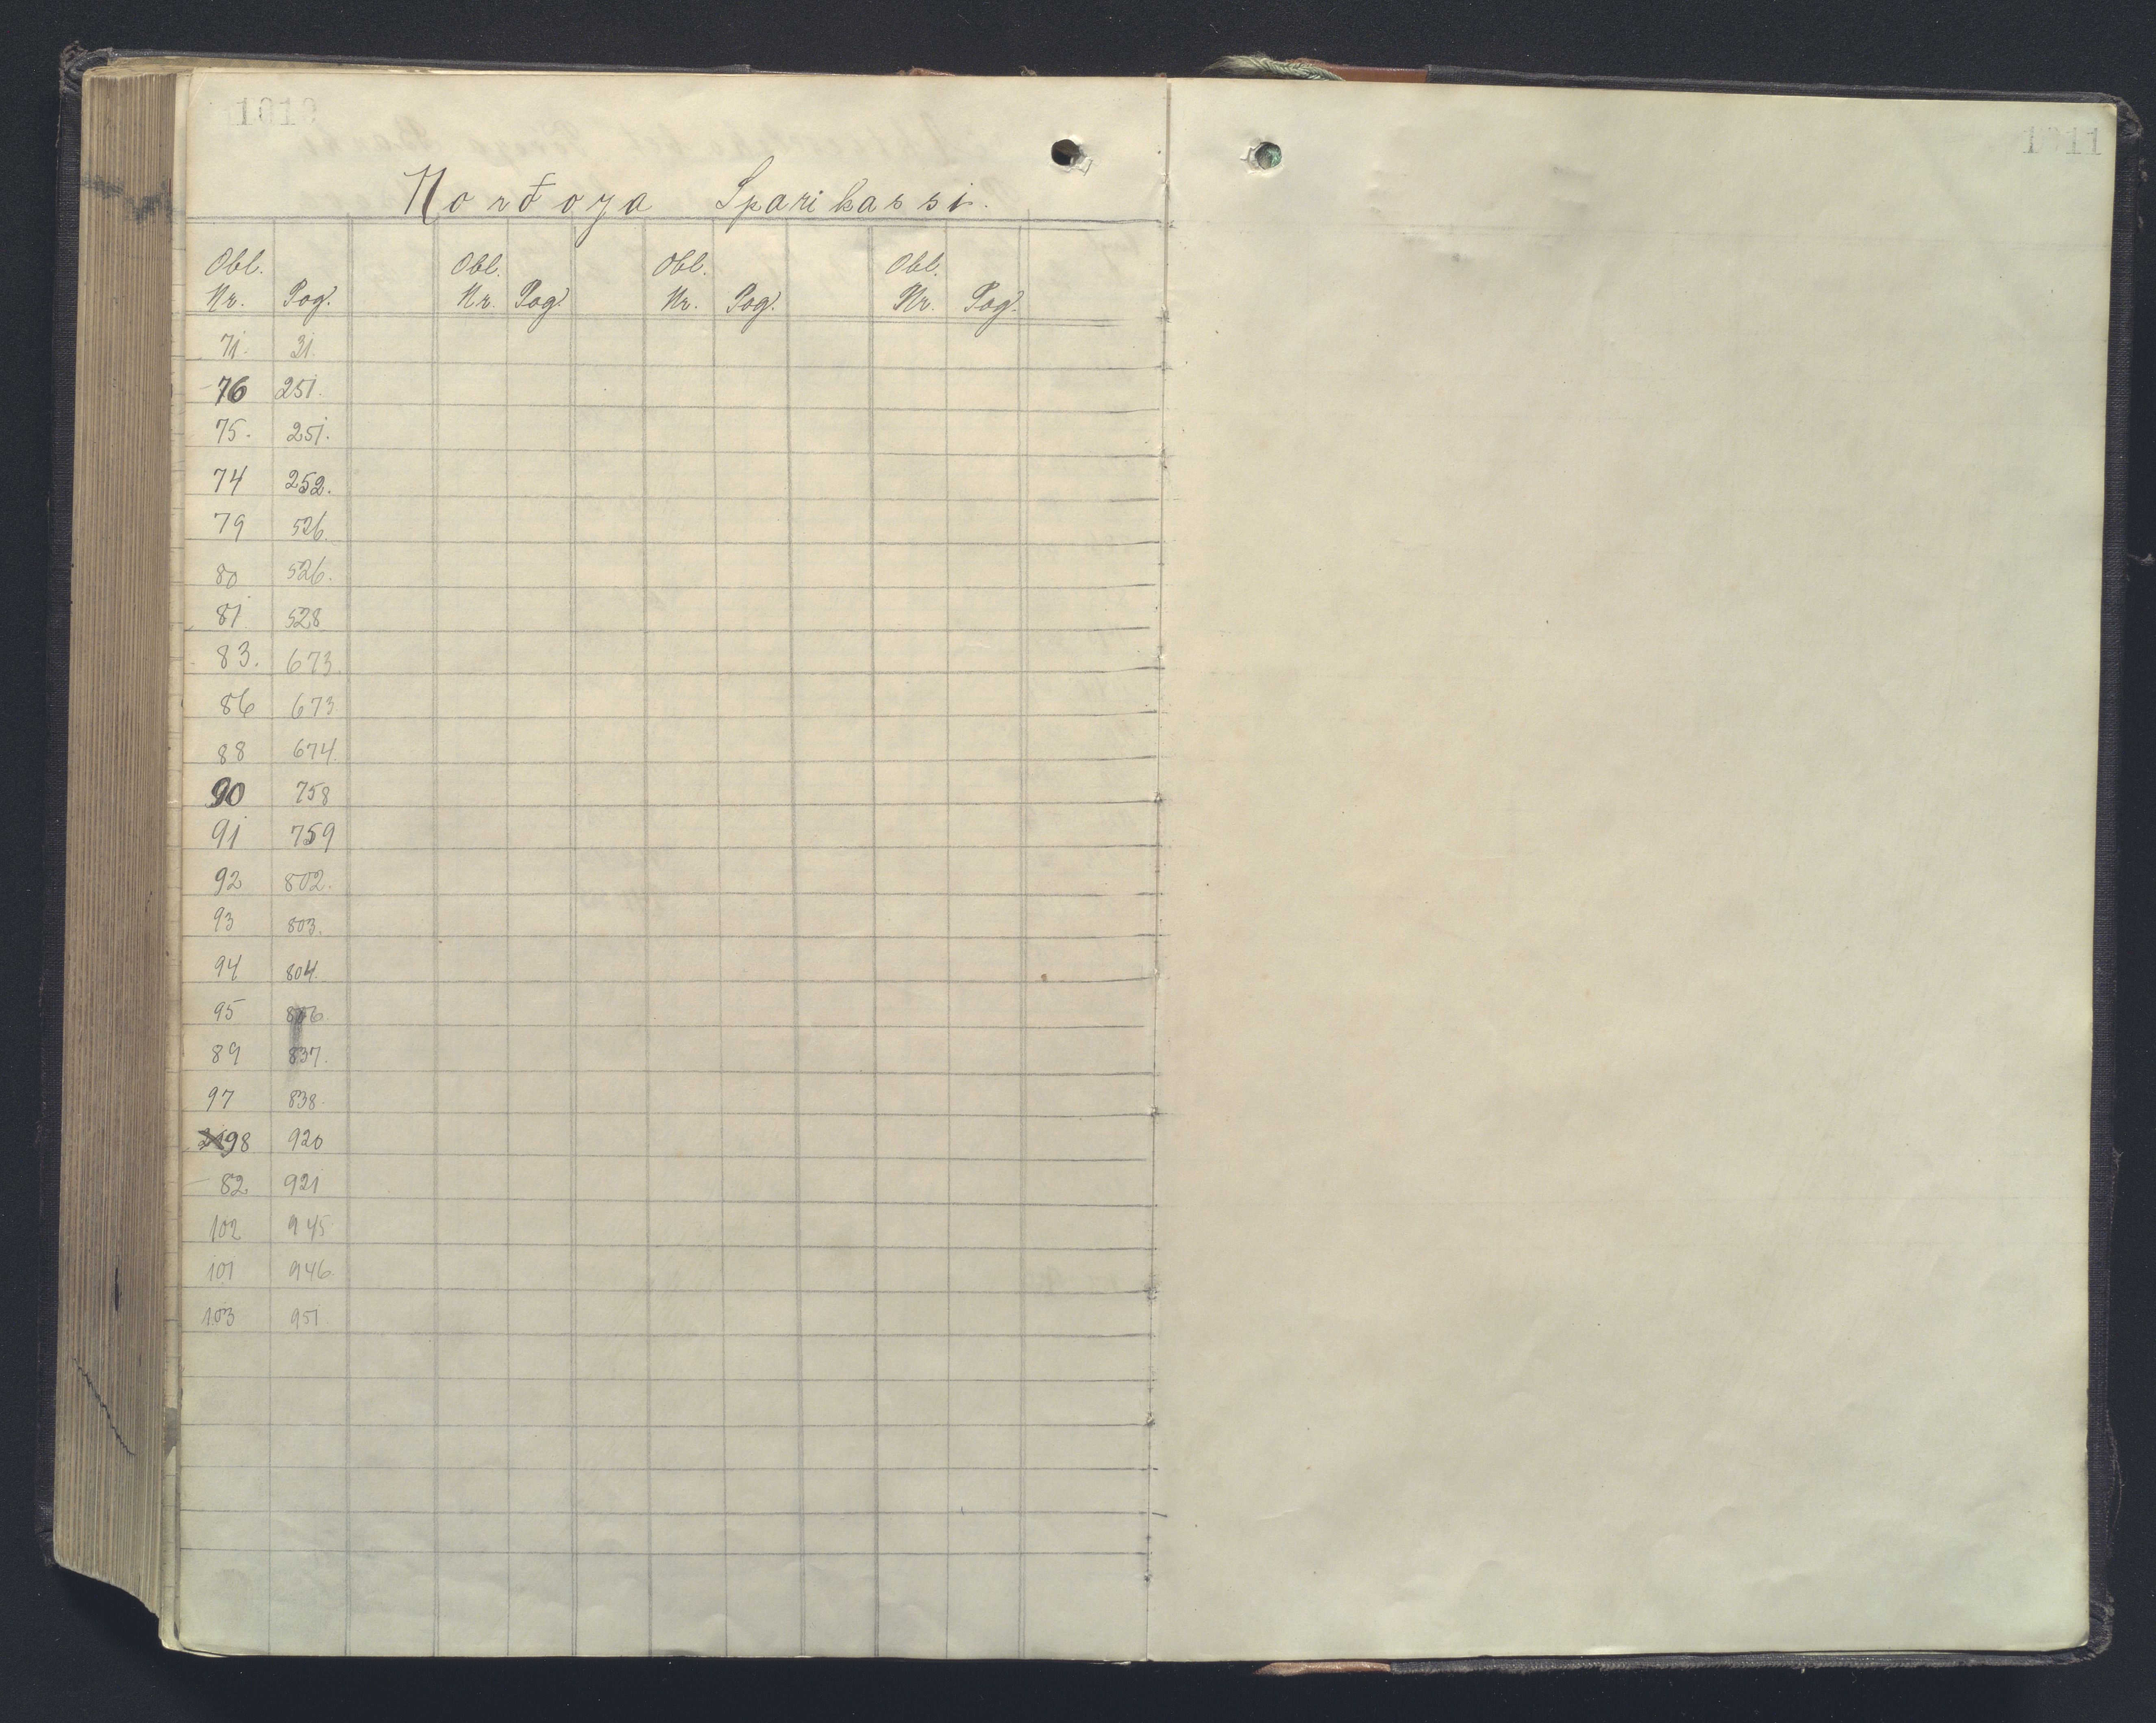 1010
1011
Norðoya Sparikassi.
Obl. Obl. Obl. Obl.
Nr. Pag. Nr. Pag. Nr. Pag. Nr. Pag.
71. 31.
76 251.
75. 251.
74 252.
79 526.
80 526.
81 528
83. 673.
86 673
88 674.
90 758
91 759
92 802.
93 803.
94 804.
95 806.
89 837.
97 838.
98 920
82 921
102 945
101 946
103 951